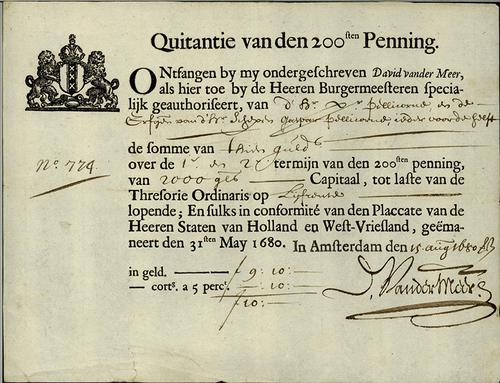 Quitantie van den 200sten Penning.
ONtfangen by my ondergeſchreven David vander Meer,
als hier toe by de Heeren Burgermeeſteren ſpecia-
lijk geauthoriſeert, van d'Hr Pellicorne en de
Erfgen van d'Hr Schepen Gaspar Pellicorne ieder voor de helft
de ſomme van thien guld
No. 774
over de 1e en 2e termijn van den 200ſten penning,
van 2000 gls Capitaal, tot laſte van de
Threſorie Ordinaris op Lijfrente
lopende; En ſulks in conformité van den Placcate van de
Heeren Staten van Holland en Weſt-Vrieſland, geëma-
neert den 31ſten May 1680. In Amſterdam den 15 augs 1680
in geld. f 9:10:
cortſ. a 5 perct. :10:
f 10:
D. VanderMeer